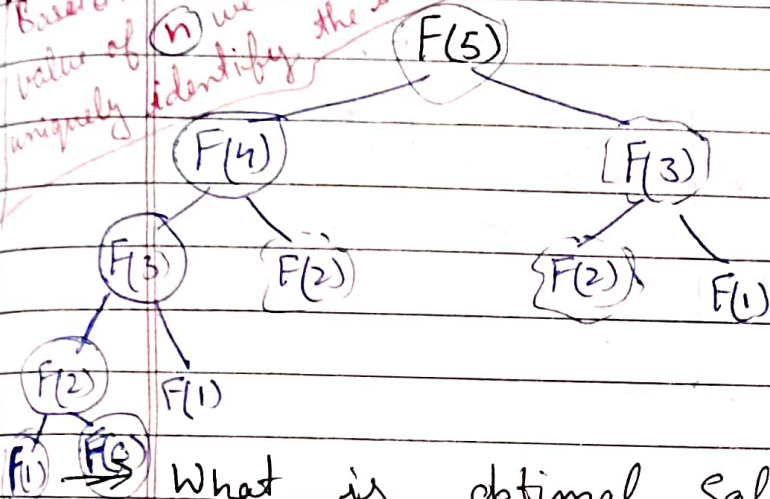 Based
value of (n) we
uniquely identify the
F(5)
F(4) F(3)
F(3) F(2) F(2) F(1)
F(2) F(1)
F(1)
→ What is optimal